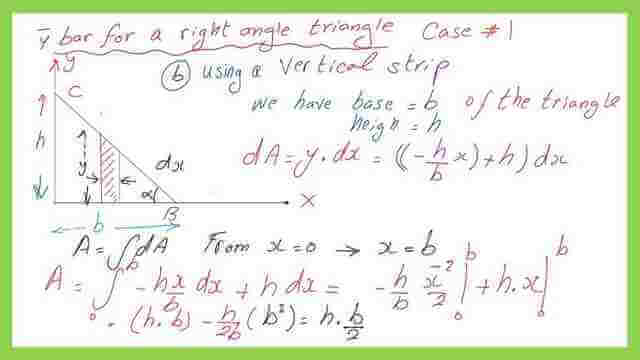 ȳ bar for a right angle triangle Case #1
(b) using a Vertical strip
we have base = b of the triangle
heign = h
dA = y.dx = ((-h/b x) + h) dx
y
C
h
y
dx
α
B
x
b
A = ∫dA From x=0 → x=b
A = ∫₀ᵇ -hx/b dx + h dx = -h/b x²/2 |₀ᵇ + h.x |₀ᵇ
. (h.b) - h/2b (b²) = h.b/2